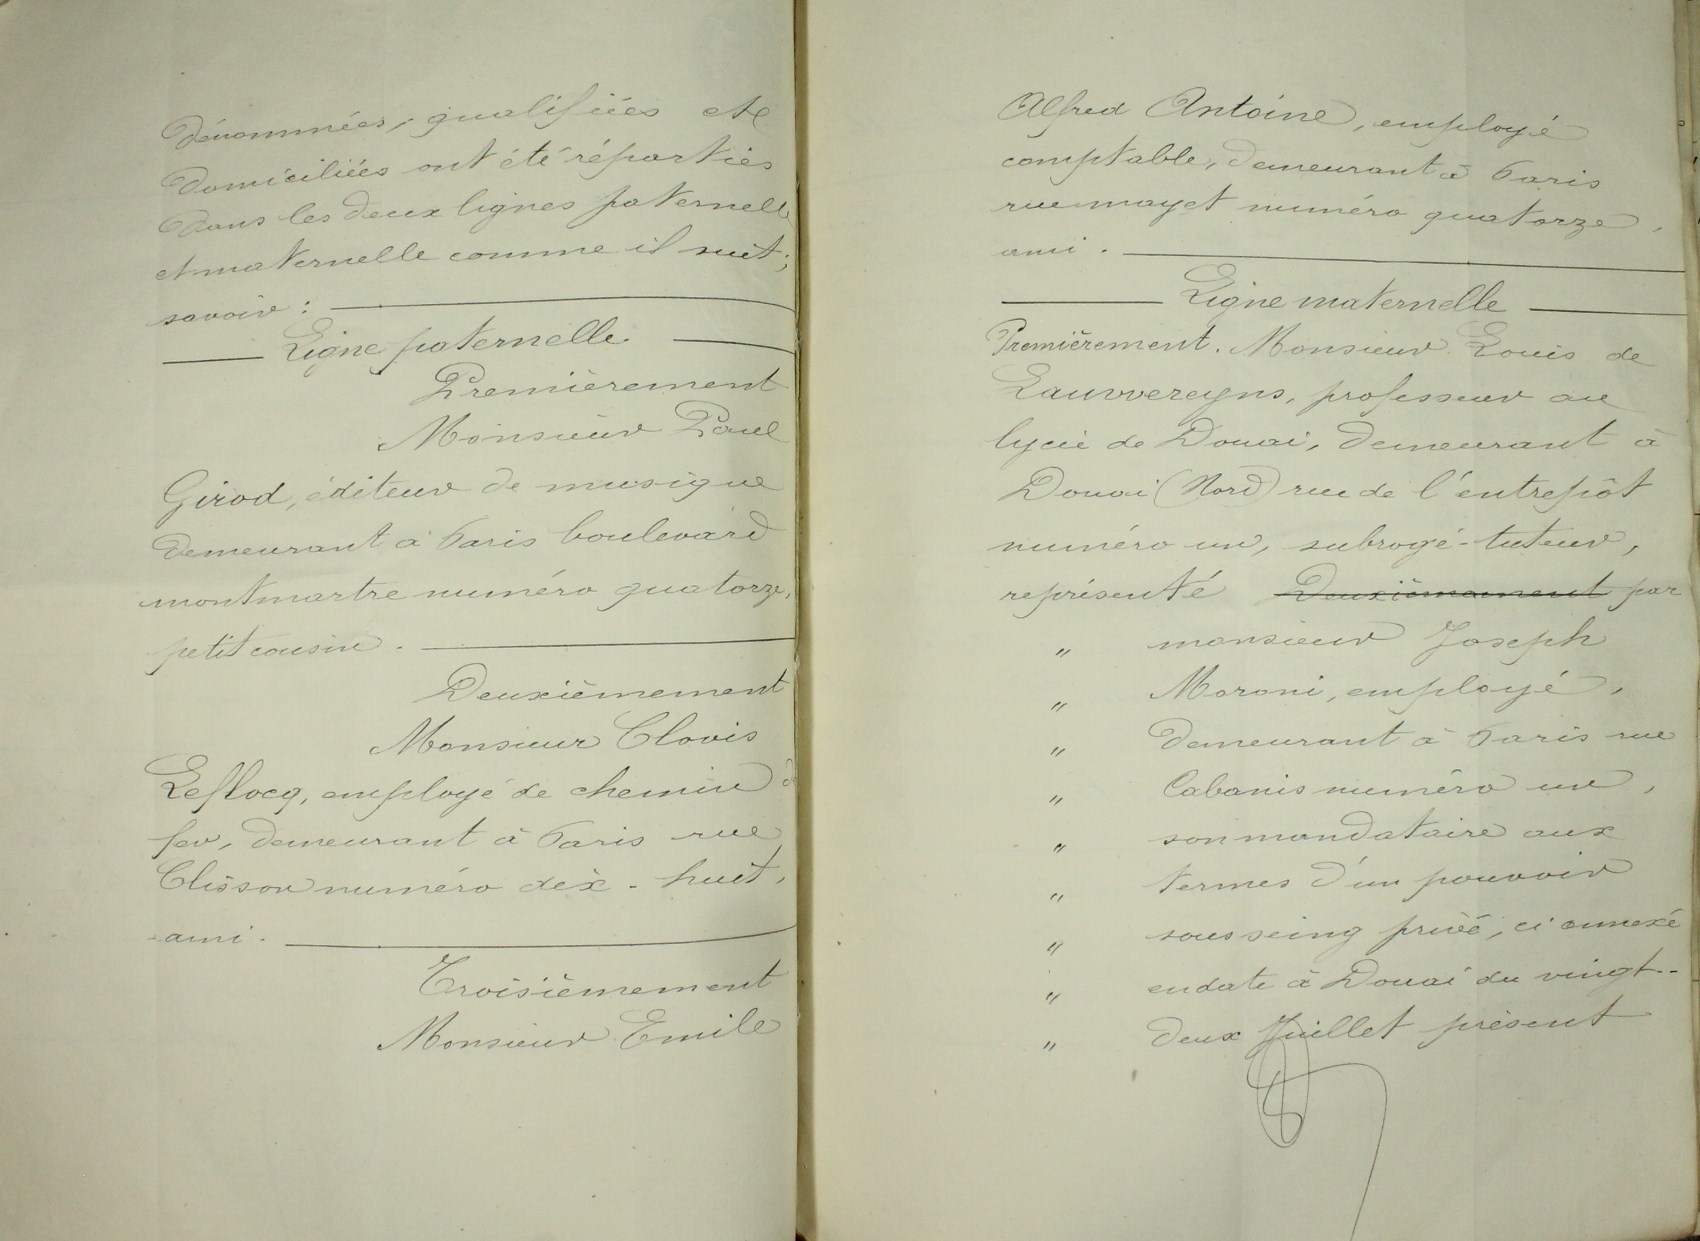 dénommées, qualifiées et
domiciliées ont été réparties
dans les deux lignes paternelle
et maternelle comme il suit;
savoir :
Ligne paternelle
Premièrement
Monsieur Paul
Girod, éditeur de musique
demeurant à Paris boulevard
montmartre numéro quatorze,
petit cousin.
Deuxièmement
Monsieur Clovis
Leflocq, employé de chemin de
fer, demeurant à Paris rue
Clisson numéro dix-huit,
ami.
Troisièmement
Monsieur Emile
Alfred Antoine, employé
comptable, demeurant à Paris
rue mayet numéro quatorze,
ami.
Ligne maternelle
Premièrement. Monsieur Louis de
Lauwereyns, professeur au
lycée de Douai, demeurant à
Douai (Nord) rue de l'entrepôt
numéro un, subrogé-tuteur,
représenté Deuxièmement par
" monsieur Joseph
" Moroni, employé,
" demeurant à Paris rue
" Cabanis numéro un,
" son mandataire aux
" termes d'un pouvoir
" sous seing privé, ci annexé
" en date à Douai du vingt-
" deux Juillet présent